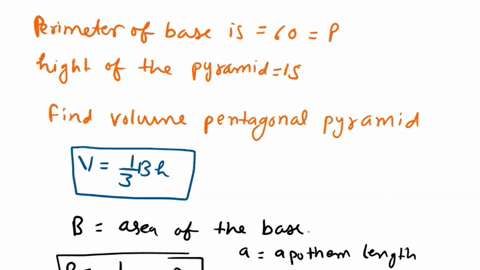 Perimeter of base is = 60 = P
hight of the pyramid = 15
find volume pentagonal pyramid
V = 1/3 Bh
B = area of the base.
a = apothem length